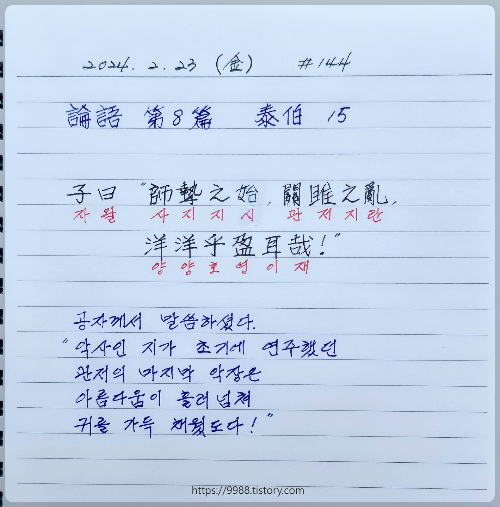 2024. 2. 23 (金) #144
論語 第8篇 泰伯 15
子曰 "師摯之始, 關雎之亂,
자왈 사지지시 관저지란
洋洋乎盈耳哉!"
양양호영이재
공자께서 말씀하셨다.
"악사인 지가 초기에 연주했던
관저의 마지막 악장은
아름다움이 흘러넘쳐
귀를 가득 채웠도다!"
https://9988.tistory.com